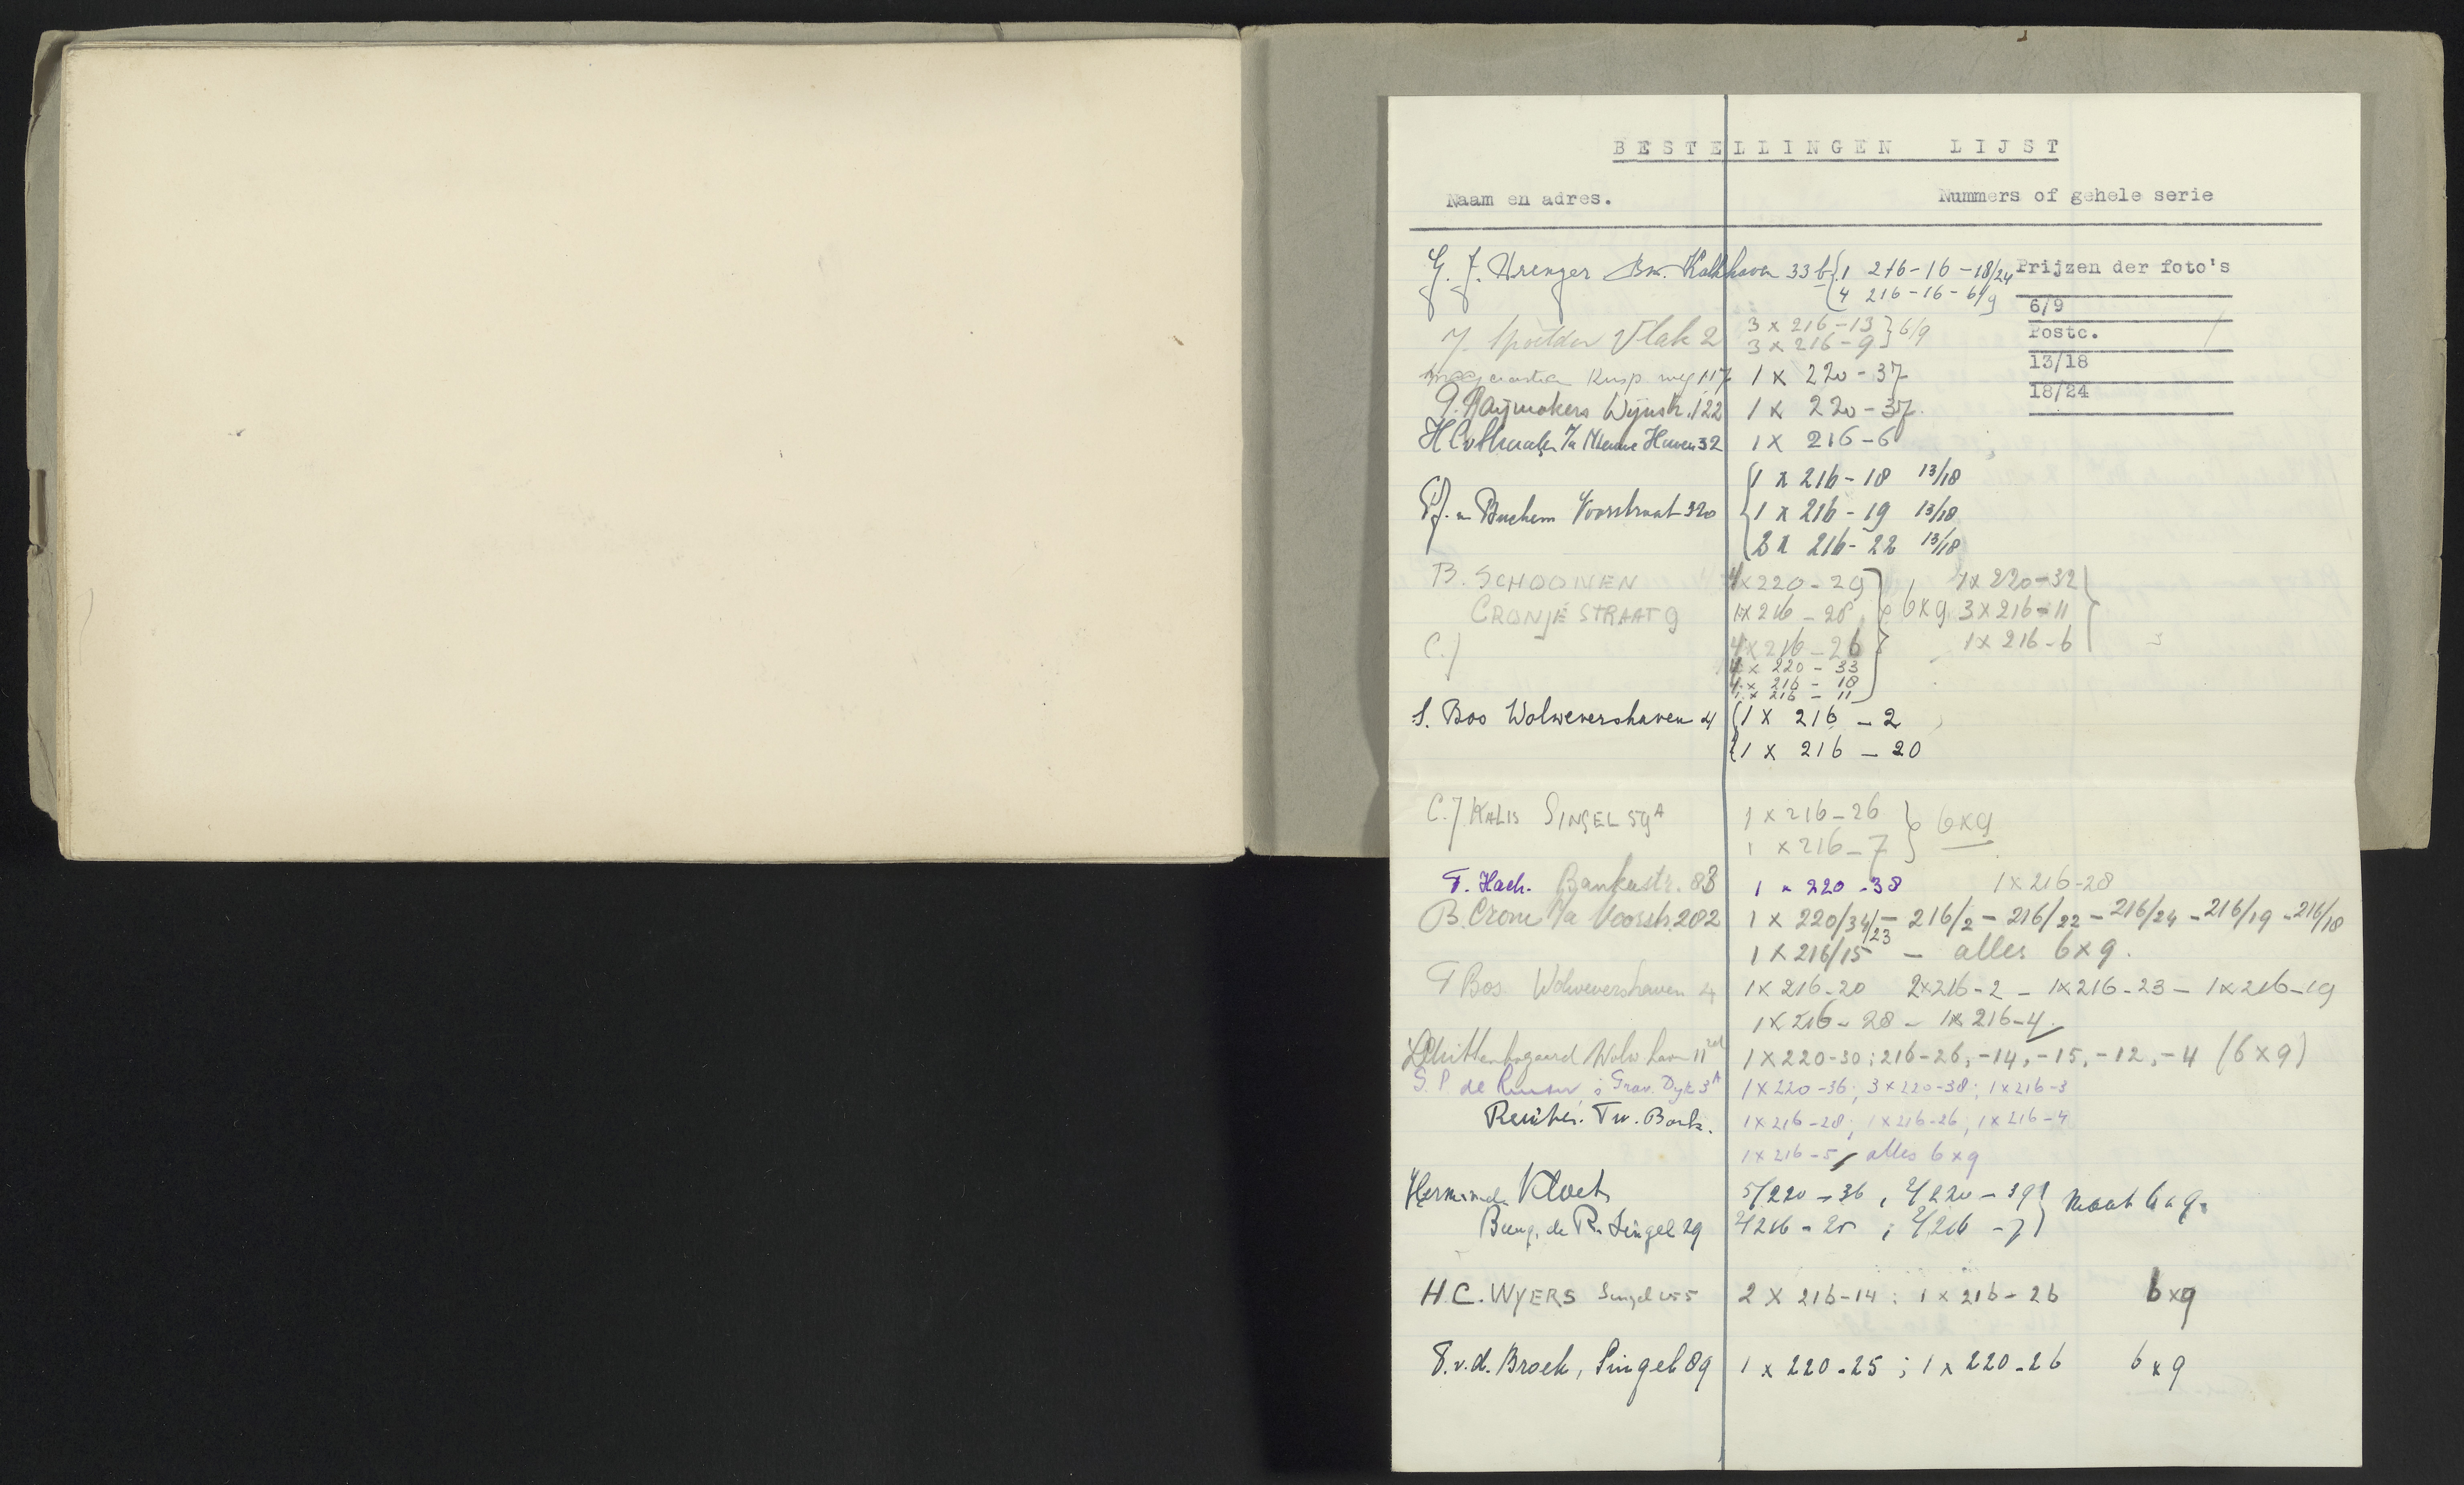 BESTELLINGEN LIJST
Naam en adres. Nummers of gehele serie
G. J. Kalkhaven 33 b {1 216-16-18/24
{4 216-16-6/9
Prijzen der foto's
6/9
Postc.
13/18
18/24
J. Spoelder Vlak 2 3 x 216-13 } 6/9
3 x 216-9
weg 117 1 x 220-37
Raymakers Wijnstr. 122 1 x 220-37.
Nieuwe Haven 32 1 x 216-6
v Buchem Voorstraat 320 {1 x 216-18 13/18
1 x 216-19 13/18
2 x 216-22 13/18
B. SCHOONEN 4x220-29 } 6x9 1x220-32 }
CRONJÉ STRAAT 9 1x216-28 3x216-11
C.J 4x216-26 1x216-6
4x 220-33
4x 216-18
1x 216-11
S. Bos Wolwevershaven 4 {1 x 216-2
{1 x 216-20
C. J KALIS SINGEL 59A 1 x 216-26 } 6x9
1 x 216-7
T. Hach. Bankastr. 83 1 x 220-38 1x216-28
B. Crone 7a Voorstr. 282 1 x 220/34/23 - 216/2 - 216/22 - 216/24 - 216/19 - 216/18
1 x 216/15 - alles 6x9.
T Bos Wolwevershaven 4 1x216-20 2x216-2 - 1x216-23 - 1x216-19
1x216-28 - 1x216-4.
Wolw. haven 11 rd 1x220-30; 216-26, -14, -15, -12, -4 (6x9)
S. P. de s Grav. Dyk 3A 1x220-36; 3x220-38; 1x216-3
1x216-28; 1x216-26, 1x216-4
1x216-5, alles 6x9
Vloet 5/220-36, 2/220-39 } maat 6x9.
Burg. de R. Singel 29 2/216-25; 2/216-7
H.C. WYERS Singel 255 2 x 216-14: 1 x 216-26 6x9
T. v. d. Broek, Singel 89 1 x 220-25; 1 x 220-26 6x9